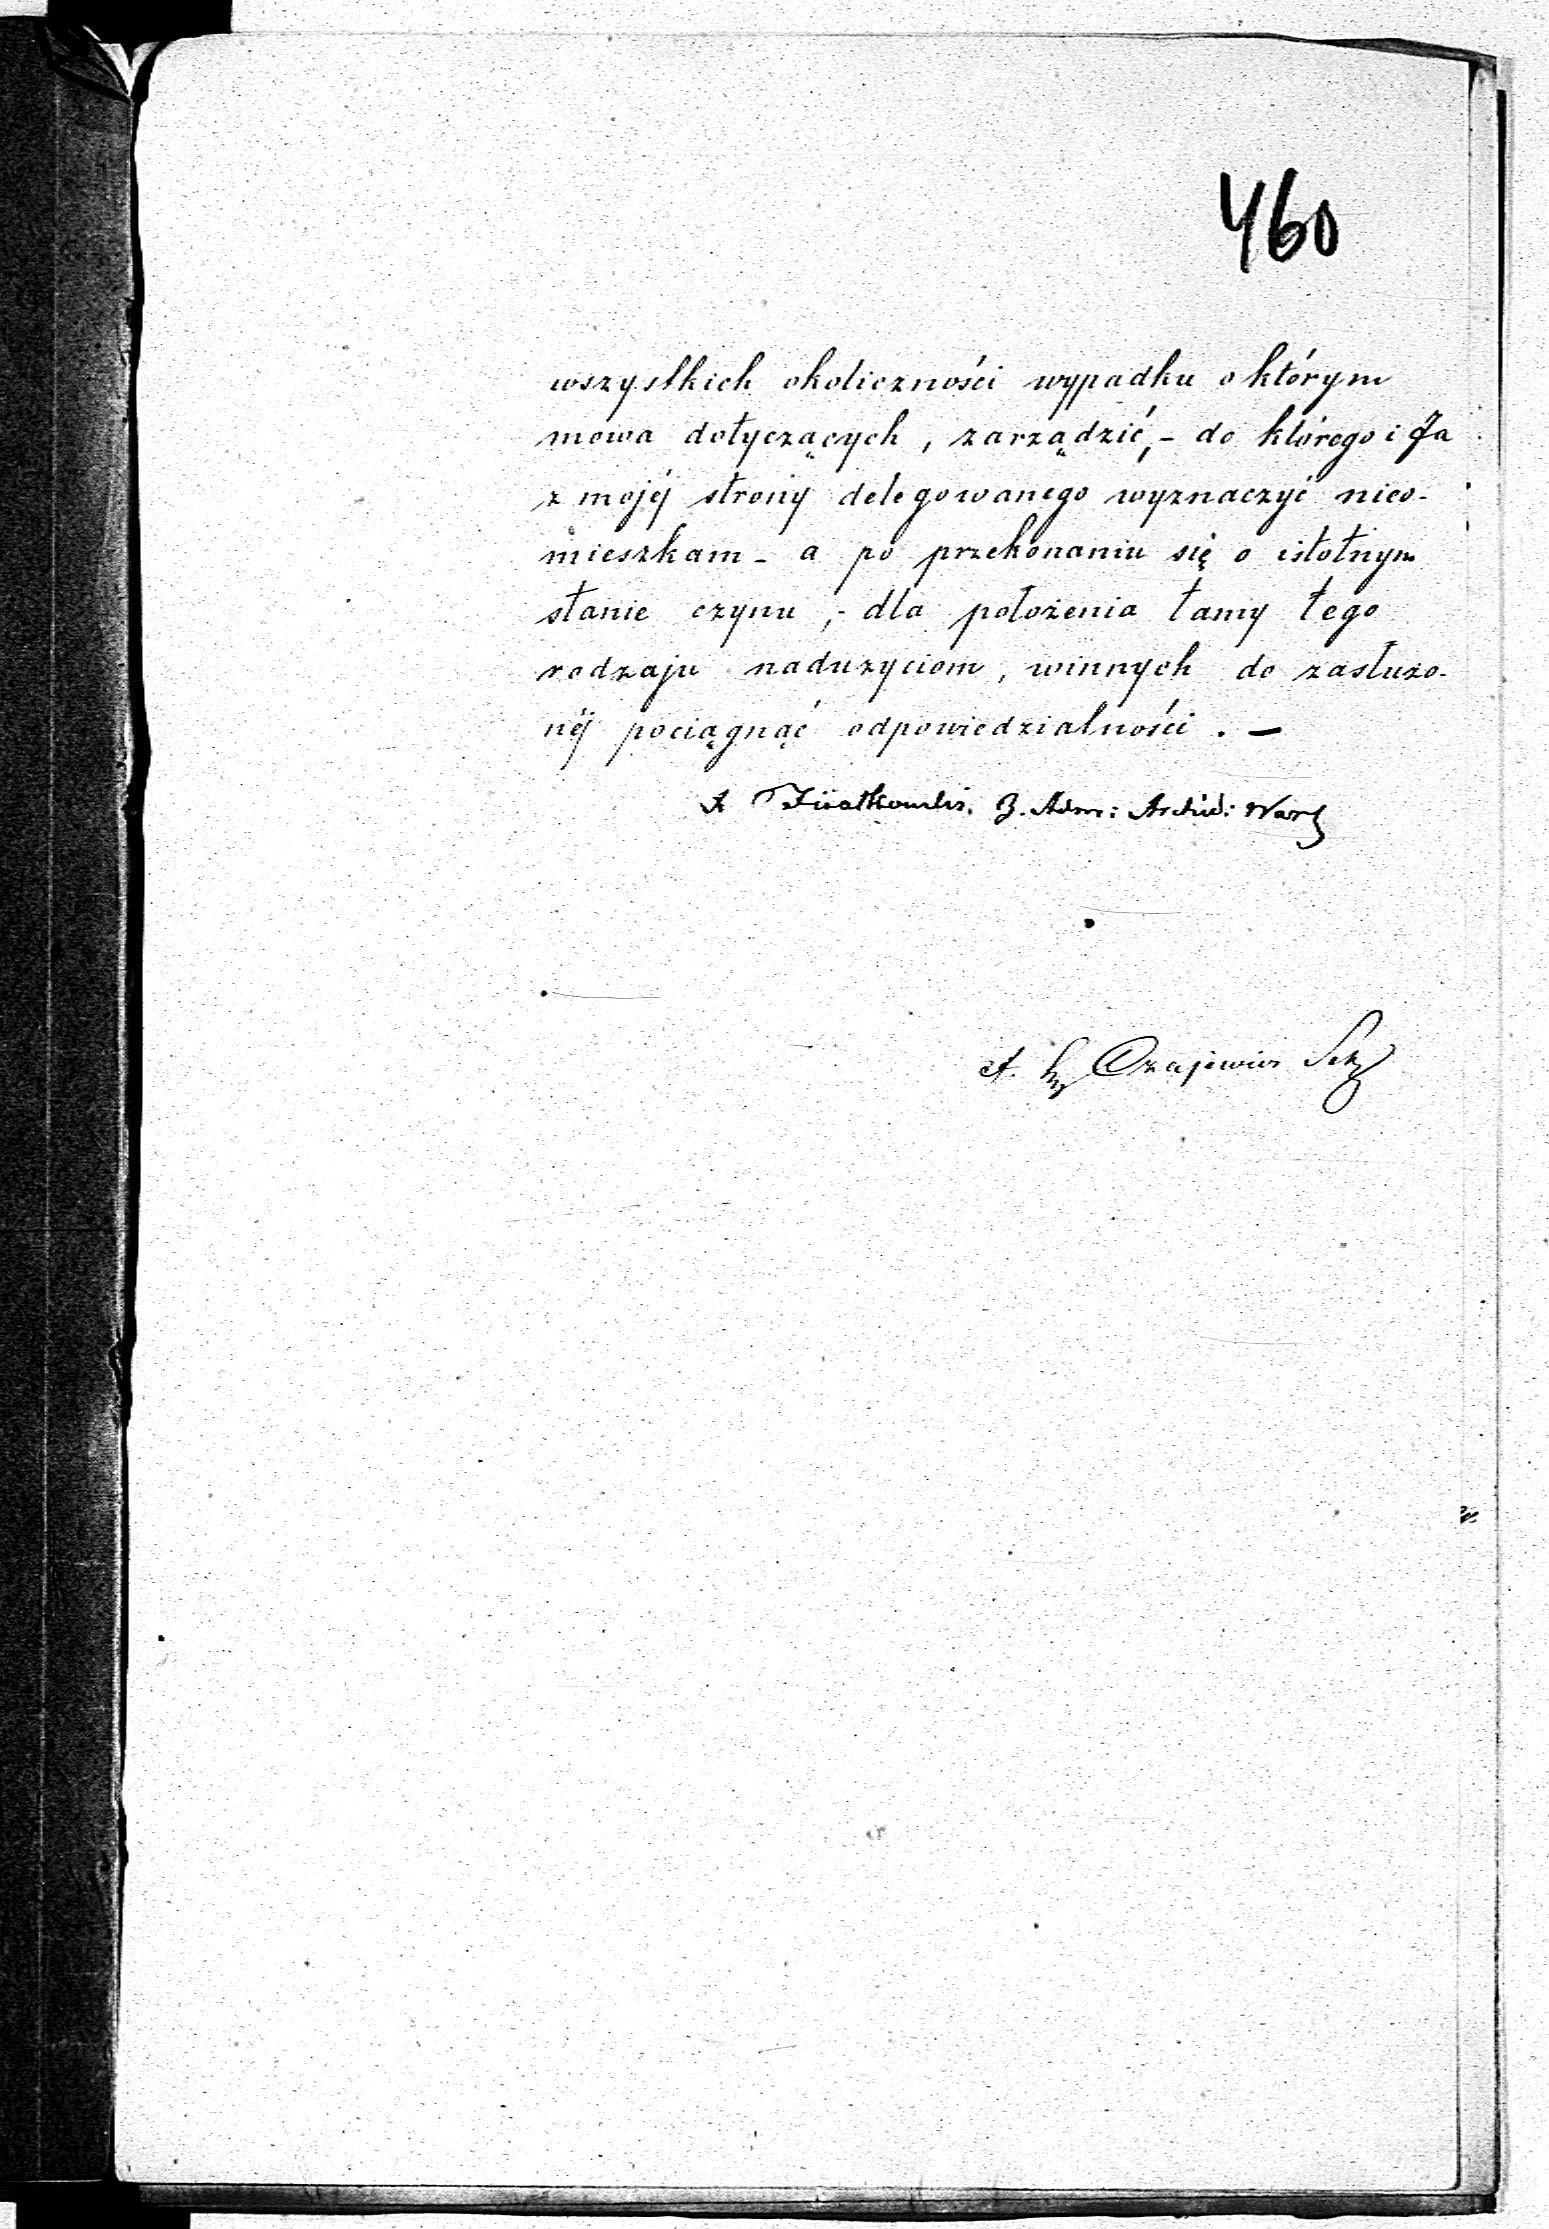 460
wszystkich okoliczności wypadku o którym
mowa dotyczących, zarządzić, - do którego i Ja
z mojéj strony delegowanego wyznaczyć nieo-
mieszkam - a po przekonaniu się o istotnym
stanie czynu, - dla położenia tamy tego
rodzaju nadużyciom, winnych do zasłużo-
néj pociągnąć odpowiedzialności. —
A Fiiałkowski. B. Adm: Archid: Wars
Czajewicz Sek